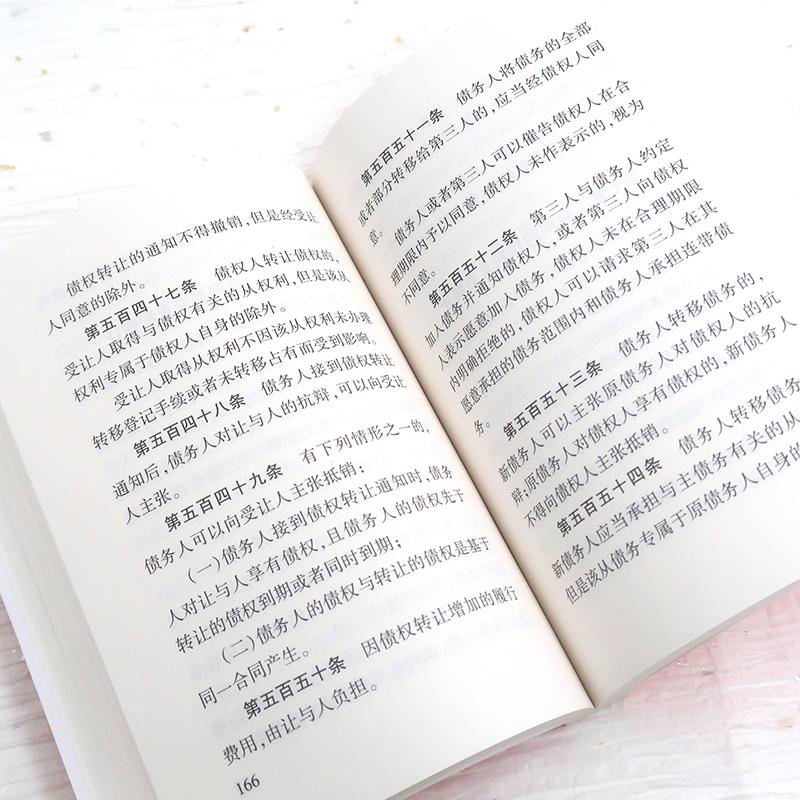 债权转让的通知不得撤销，但是经受让
人同意的除外。
第五百四十七条 债权人转让债权的，
受让人取得与债权有关的从权利，但是该从
权利专属于债权人自身的除外。
受让人取得从权利不因该从权利未办理
转移登记手续或者未转移占有而受到影响。
第五百四十八条 债务人接到债权转让
通知后，债务人对让与人的抗辩，可以向受让
人主张。
第五百四十九条 有下列情形之一的，
债务人可以向受让人主张抵销：
（一）债务人接到债权转让通知时，债务
人对让与人享有债权，且债务人的债权先于
转让的债权到期或者同时到期；
（二）债务人的债权与转让的债权是基于
同一合同产生。
第五百五十条 因债权转让增加的履行
费用，由让与人负担。
166
第五百五十一条 债务人将债务的全部
或者部分转移给第三人的，应当经债权人同
意。
债务人或者第三人可以催告债权人在合
理期限内予以同意，债权人未作表示的，视为
不同意。
第五百五十二条 第三人与债务人约定
加入债务并通知债权人，或者第三人向债权
人表示愿意加入债务，债权人未在合理期限
内明确拒绝的，债权人可以请求第三人在其
愿意承担的债务范围内和债务人承担连带债
务。
第五百五十三条 债务人转移债务的，
新债务人可以主张原债务人对债权人的抗
辩；原债务人对债权人享有债权的，新债务人
不得向债权人主张抵销。
第五百五十四条 债务人转移债务
新债务人应当承担与主债务有关的从
但是该从债务专属于原债务人自身的